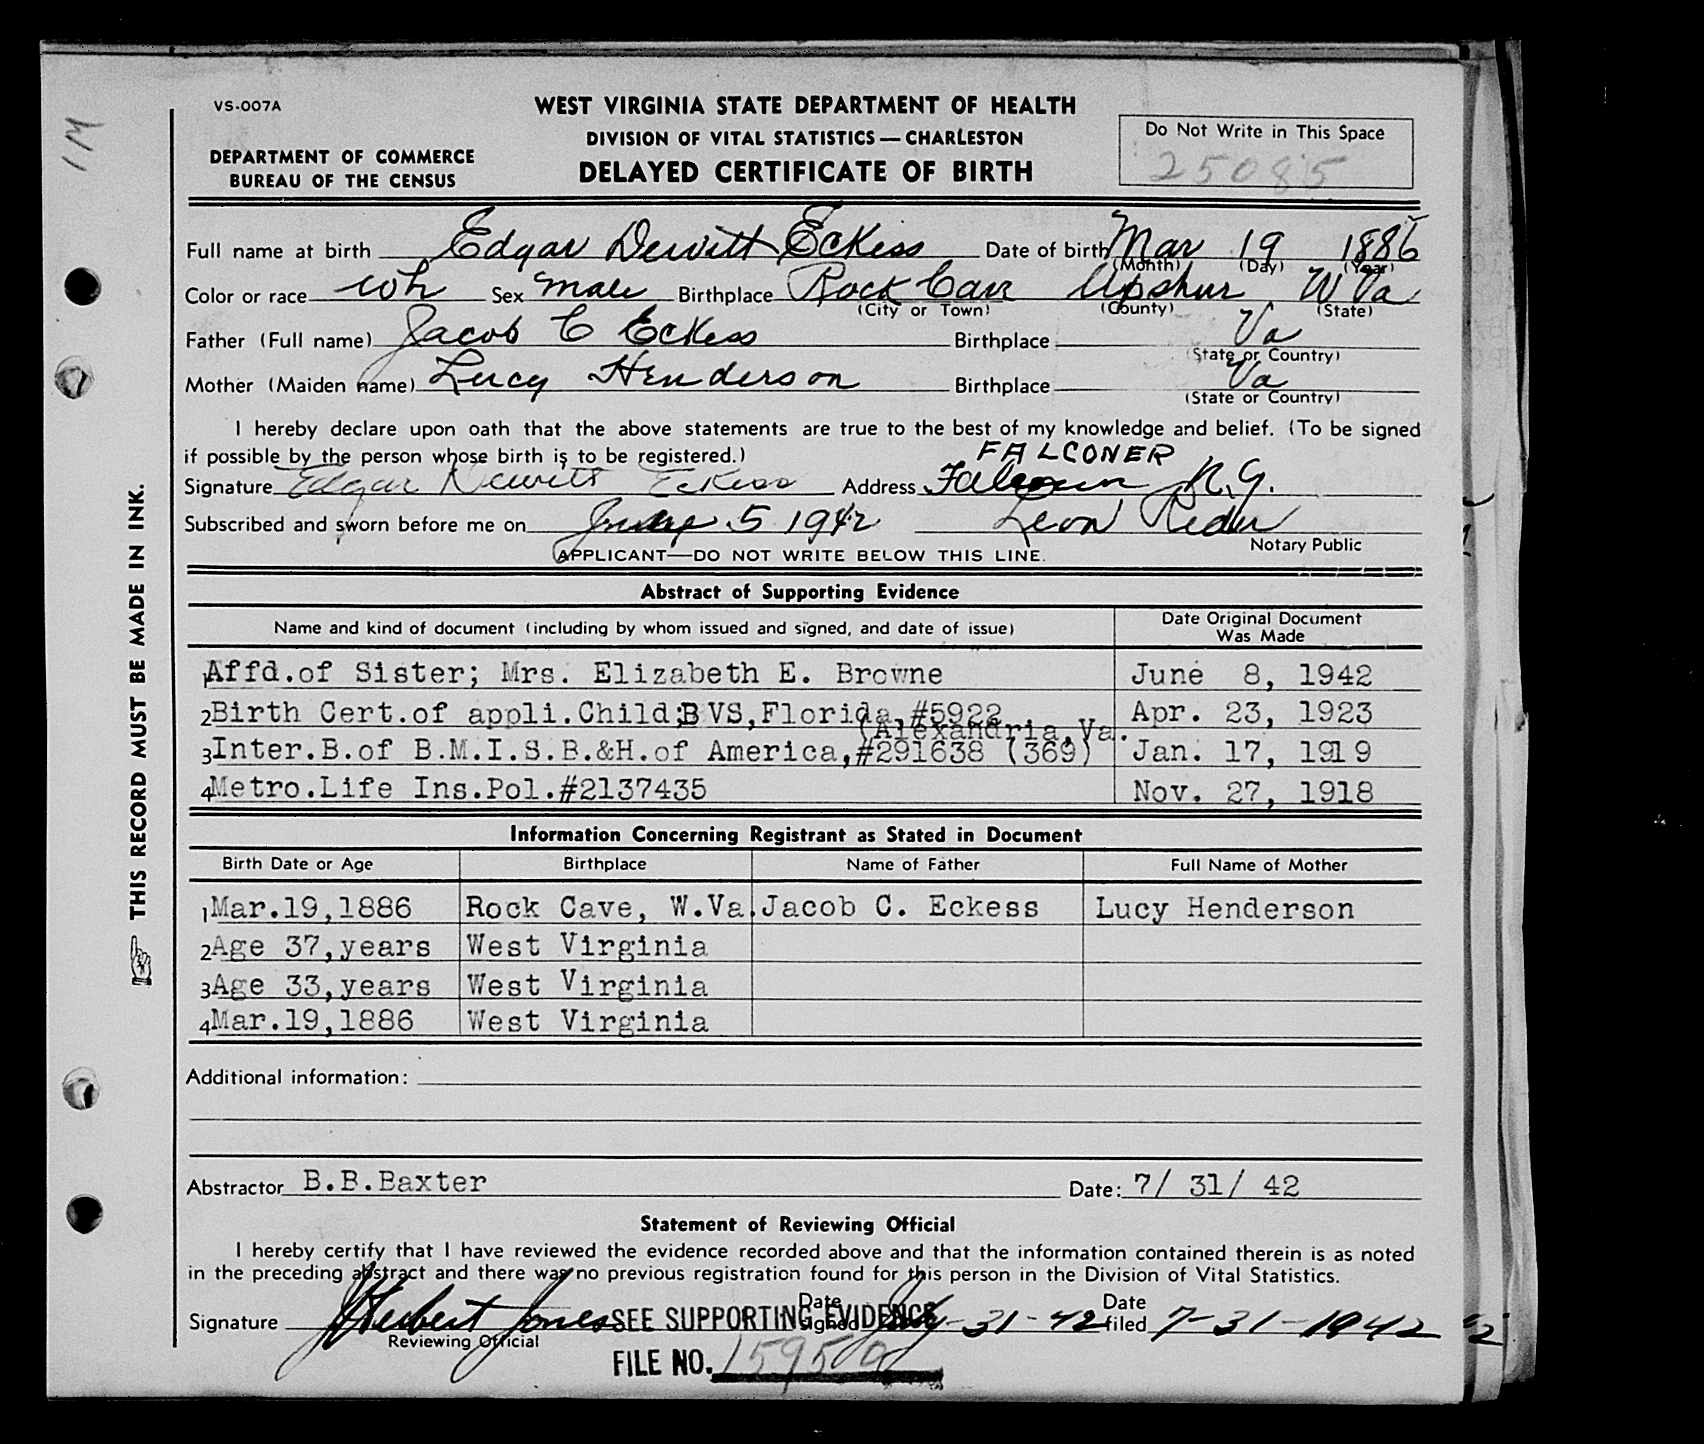 VS-007A
WEST VIRGINIA STATE DEPARTMENT OF HEALTH
DIVISION OF VITAL STATISTICS — CHARLESTON
DELAYED CERTIFICATE OF BIRTH
DEPARTMENT OF COMMERCE
BUREAU OF THE CENSUS
Do Not Write in This Space
25085
Full name at birth Edgar Dewitt Eckess Date of birth Mar 19 1886
(Month) (Day) (Year)
Color or race Wh Sex Male Birthplace Rock Cave Upshur W Va
(City or Town) (County) (State)
Father (Full name) Jacob C Eckess Birthplace Va
(State or Country)
Mother (Maiden name) Lucy Henderson Birthplace Va
(State or Country)
I hereby declare upon oath that the above statements are true to the best of my knowledge and belief. (To be signed
if possible by the person whose birth is to be registered.)
FALCONER
Signature Edgar Dewitt Eckess Address Falconer
Subscribed and sworn before me on 5 1942 Leon
Notary Public
APPLICANT—DO NOT WRITE BELOW THIS LINE.
Abstract of Supporting Evidence
Name and kind of document (including by whom issued and signed, and date of issue) Date Original Document Was Made
1 Affd.of Sister; Mrs. Elizabeth E. Browne June 8, 1942
2 Birth Cert.of appli.Child;B VS,Florida,#5922 Apr. 23, 1923
(Alexandria,Va.
3 Inter.B.of B.M.I.S.B.&H.of America,#291638 (369) Jan. 17, 1919
4 Metro.Life Ins.Pol.#2137435 Nov. 27, 1918
Information Concerning Registrant as Stated in Document
Birth Date or Age Birthplace Name of Father Full Name of Mother
1 Mar.19,1886 Rock Cave, W.Va. Jacob C. Eckess Lucy Henderson
2 Age 37,years West Virginia
3 Age 33,years West Virginia
4 Mar.19,1886 West Virginia
Additional information:
Abstractor B.B.Baxter Date: 7/ 31/ 42
Statement of Reviewing Official
I hereby certify that I have reviewed the evidence recorded above and that the information contained therein is as noted
in the preceding abstract and there was no previous registration found for this person in the Division of Vital Statistics.
Signature J Herbert Jones Date signed July-31-42 Date filed 7-31-1942
Reviewing Official
SEE SUPPORTING EVIDENCE
FILE NO. 15950
THIS RECORD MUST BE MADE IN INK.